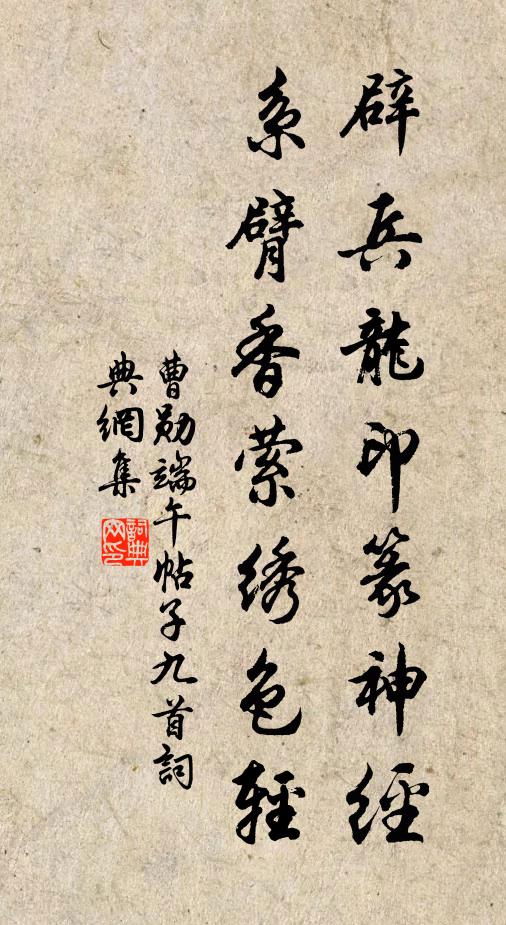 辟兵龍印篆神經
系臂香縈綉色輕
曹勛端午帖子九首詞
典網集
詞典网印